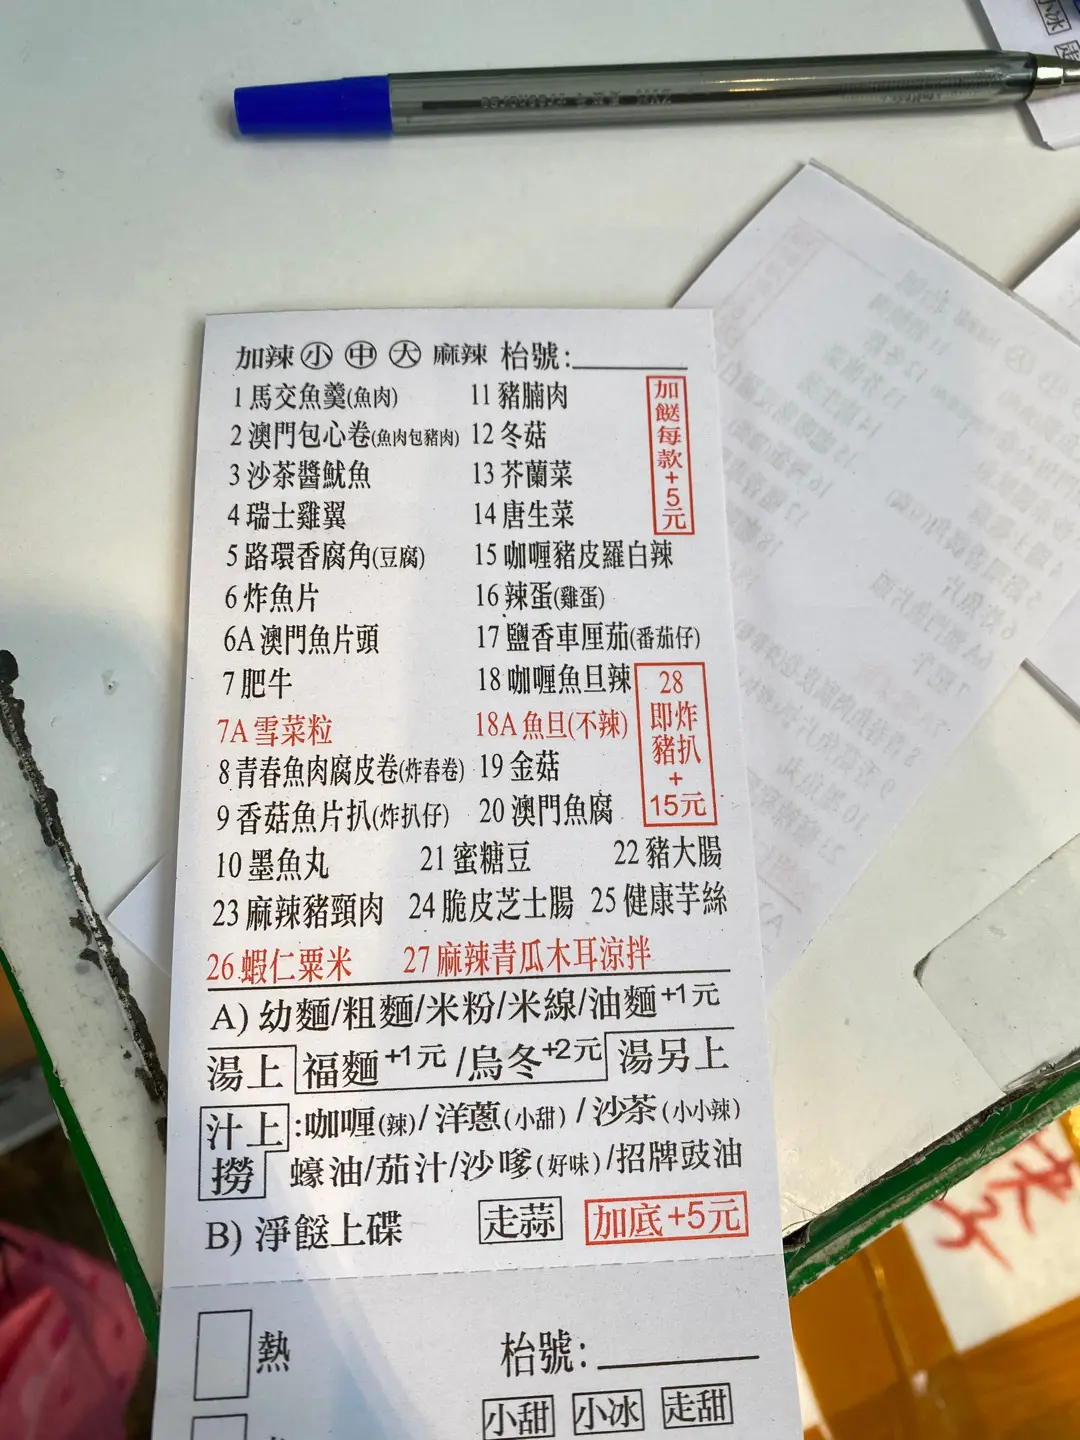 加辣 小 中 大 麻辣 枱號:
1 馬交魚羹(魚肉) 11 豬腩肉
2 澳門包心卷(魚肉包豬肉) 12 冬菇
3 沙茶醬魷魚 13 芥蘭菜
4 瑞士雞翼 14 唐生菜
5 路環香腐角(豆腐) 15 咖喱豬皮羅白辣
6 炸魚片 16 辣蛋(雞蛋)
6A 澳門魚片頭 17 鹽香車厘茄(番茄仔)
7 肥牛 18 咖喱魚旦辣
7A 雪菜粒 18A 魚旦(不辣)
8 青春魚肉腐皮卷(炸春卷) 19 金菇
9 香菇魚片扒(炸扒仔) 20 澳門魚腐
加餸每款+5元
28
即炸
豬扒
+
15元
10 墨魚丸 21 蜜糖豆 22 豬大腸
23 麻辣豬頸肉 24 脆皮芝士腸 25 健康芋絲
26 蝦仁粟米 27 麻辣青瓜木耳涼拌
A) 幼麵/粗麵/米粉/米線/油麵+1元
湯上 福麵+1元/烏冬+2元 湯另上
汁上:咖喱(辣)/洋蔥(小甜)/沙茶(小小辣)
撈 蠔油/茄汁/沙嗲(好味)/招牌豉油
B) 淨餸上碟 走蒜 加底+5元
熱 枱號:
小甜 小冰 走甜